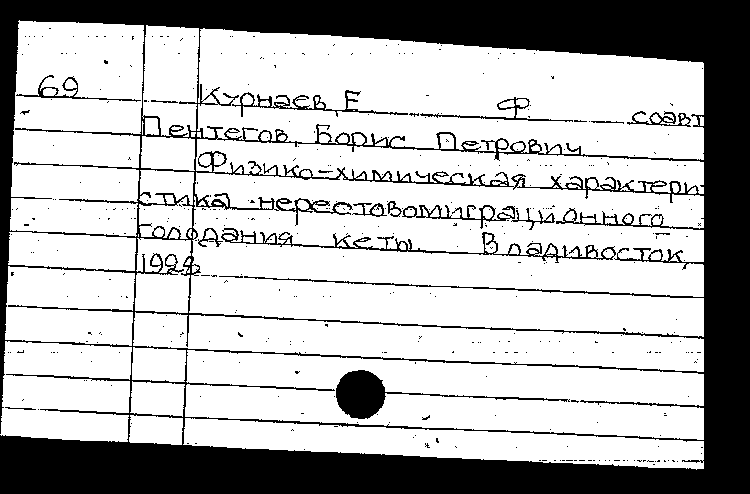 69 Курнаев, Е Ф соавт
Пентегов, Борис Петрович
Физико-химическая характери-
стика нерестовомиграционного
голодания кеты. Владивосток,
1928